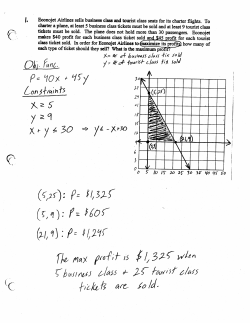 1. Econojet Airlines sells business class and tourist class seats for its charter flights. To
charter a plane, at least 5 business class tickets must be sold and at least 9 tourist class
tickets must be sold. The plane does not hold more than 30 passengers. Econojet
makes $40 profit for each business class ticket sold and $45 profit for each tourist
class ticket sold. In order for Econojet Airlines to maximize its profits, how many of
each type of ticket should they sell? What is the maximum profit?
x = # of business class tix sold
y = # of tourist class tix sold
Obj. Func.
P = 40x + 45y
Constraints
x ≥ 5
y ≥ 9
x + y ≤ 30 ⇒ y ≤ -x+30
(5,25)
(5,9)
(21,9)
(5,25): P = $1,325
(5,9): P = $605
(21,9): P = $1,245
The max profit is $1,325 when
5 business class + 25 tourist class
tickets are sold.